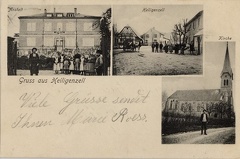 Heiligenzell
Kirche
Gruss aus Heiligenzell
Viele Grüsse sendet
Ihnen Marie